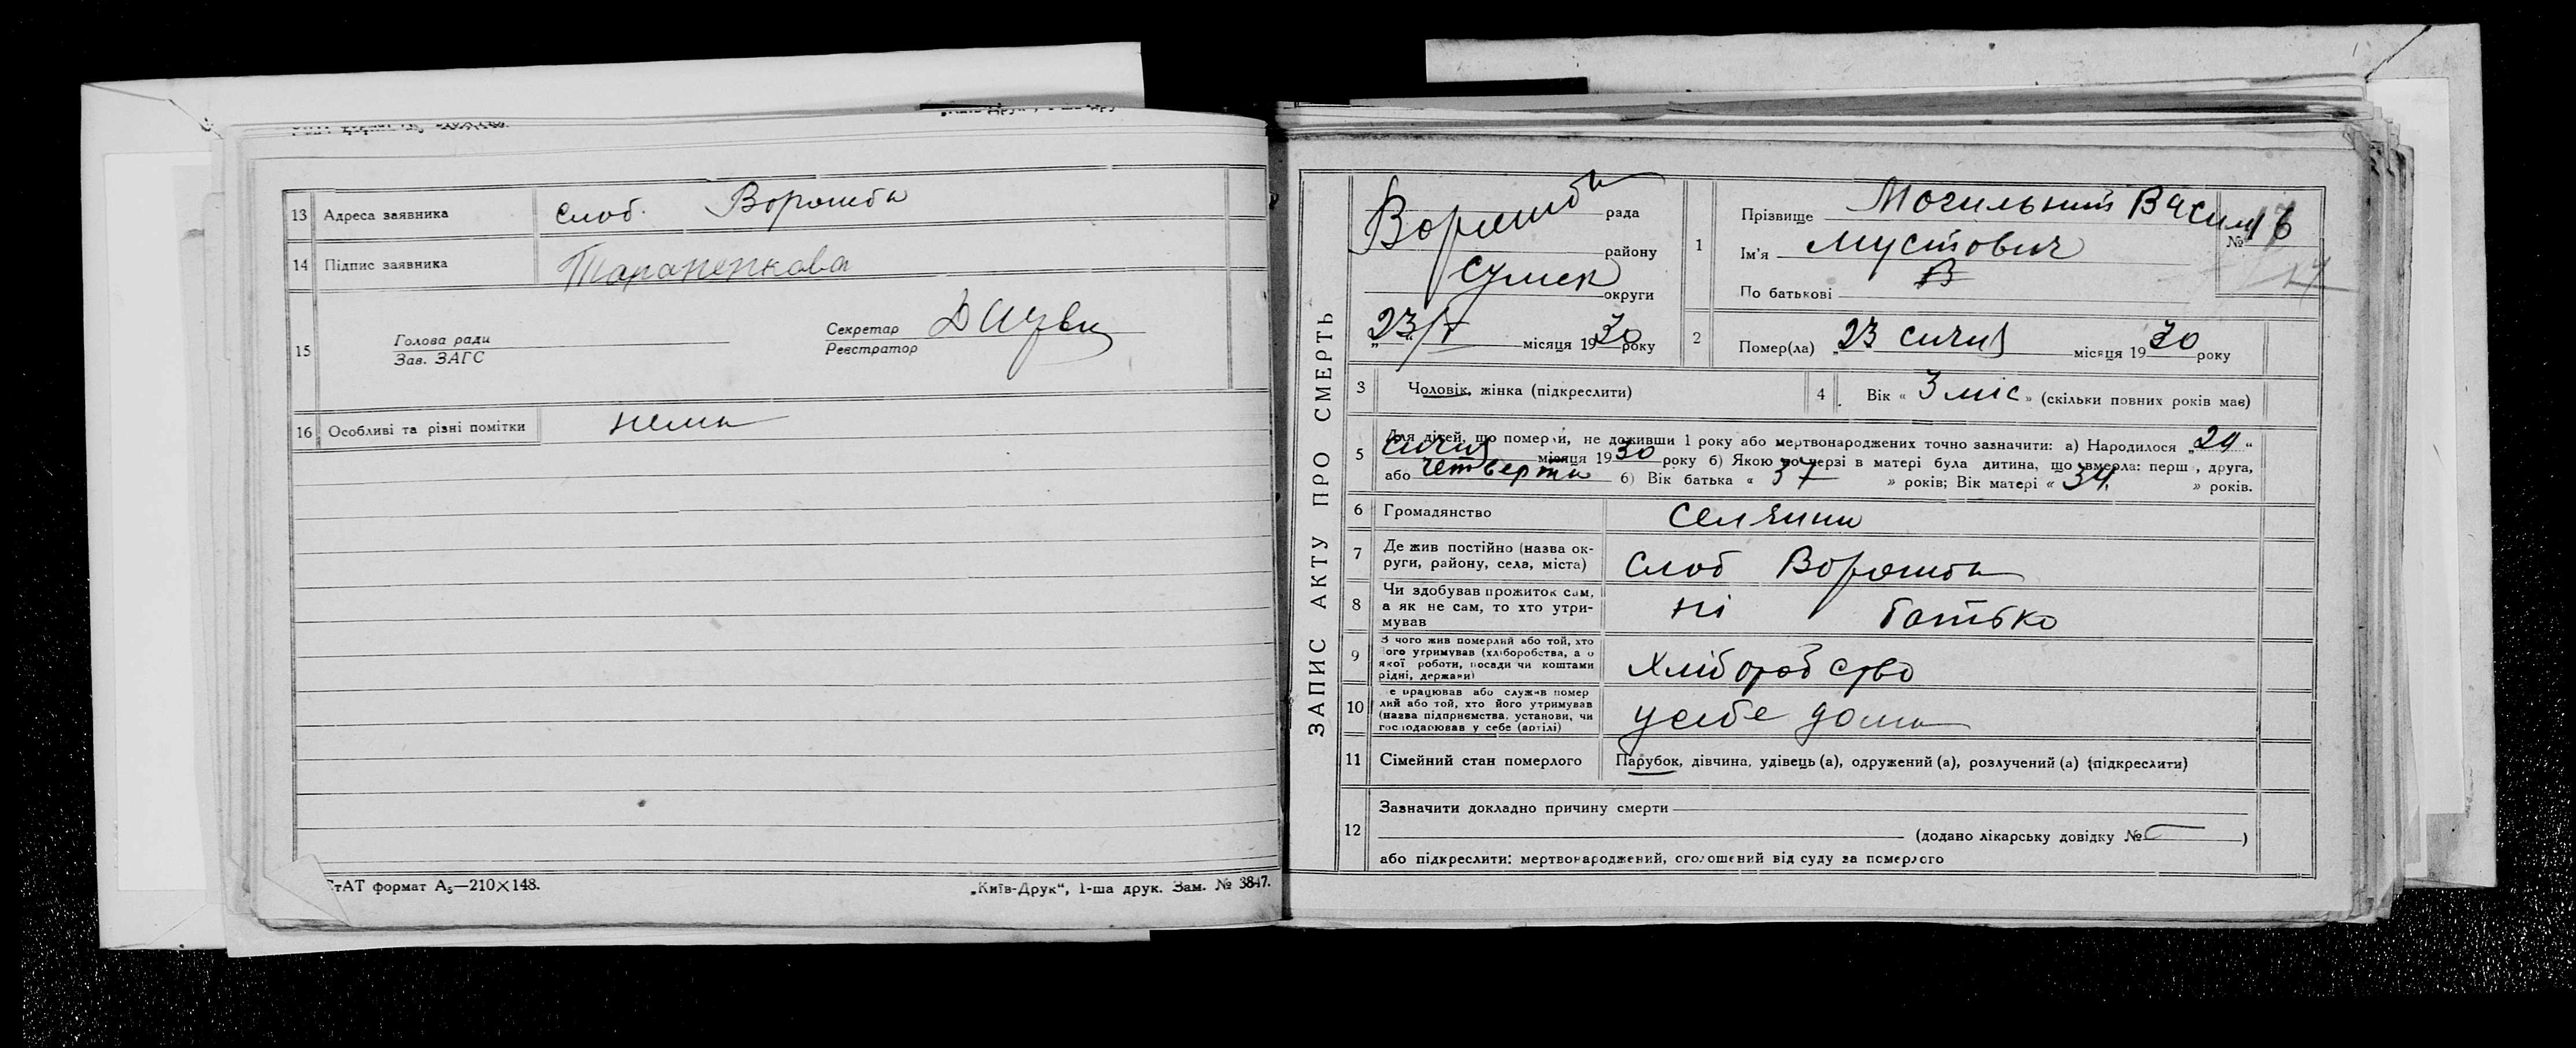 13 Адреса заявника слоб. Ворожба
14 Підпис заявника Тараненкова
15 Голова ради
Зав. ЗАГС
Секретар
Реєстратор
16 Особливі та різні помітки нема
СтАТ формат А₅—210×148. „Київ-Друк“, 1-ша друк. Зам. № 3847.
ЗАПИС АКТУ ПРО СМЕРТЬ
Ворожба рада
району
Сумск округи
„23/I місяця 1930 року
1 Прізвище Могильний Василь
Ім'я Мустович
По батькові В
№
2 Помер(ла) „23 січня місяця 1930 року
3 Чоловік, жінка (підкреслити)
4 Вік « 3 міс » (скільки повних років мав)
5 Для дітей, що померли, не доживши 1 року або мертвонароджених точно зазначити: а) Народилося „29“
січня місяця 1930 року б) Якою по черзі в матері була дитина, що вмерла: перша, друга,
або четверта б) Вік батька « 37 » років; Вік матері « 34 » років.
6 Громадянство селянин
7 Де жив постійно (назва ок-
руги, району, села, міста) Слоб Ворожба
8 Чи здобував прожиток сам,
а як не сам, то хто утри-
мував ні батько
9 З чого жив померлий або той, хто
його утримував (хліборобства, а о
якої роботи, посади чи коштами
рідні, держави) Хліборобство
10 Де працював або служив помер
лий або той, хто його утримував
(назва підприємства, установи, чи
господарював у себе (артілі) у себе дома
11 Сімейний стан померлого Парубок, дівчина, удівець (а), одружений (а), розлучений (а) (підкреслити)
12 Зазначити докладно причину смерти
(додано лікарську довідку № )
або підкреслити: мертвонароджений, оголошений від суду за померлого